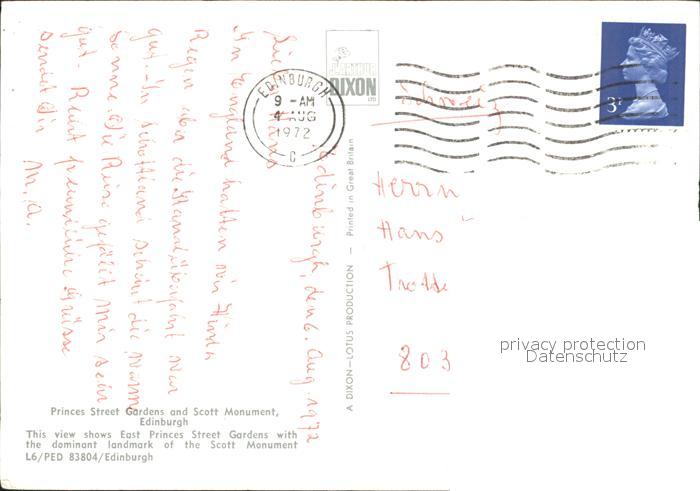 Edinburgh, den 6. Aug 1972
In England hatten wir Wind
Regen aber die Kanalüberfahrt war
gut. - In Schottland scheint die warme
Sonne. Die Reise gefällt mir sehr
gut. - Recht freundliche Grüsse
sendet Dir
M. A.
J. ARTHUR
DIXON
LTD
EDINBURGH
9 -AM
4 AUG
1972
C
3P
Schweiz
Herrn
Hans
803
privacy protection
Datenschutz
A DIXON-LOTUS PRODUCTION — Printed in Great Britain
Princes Street Gardens and Scott Monument,
Edinburgh
This view shows East Princes Street Gardens with
the dominant landmark of the Scott Monument
L6/PED 83804/Edinburgh